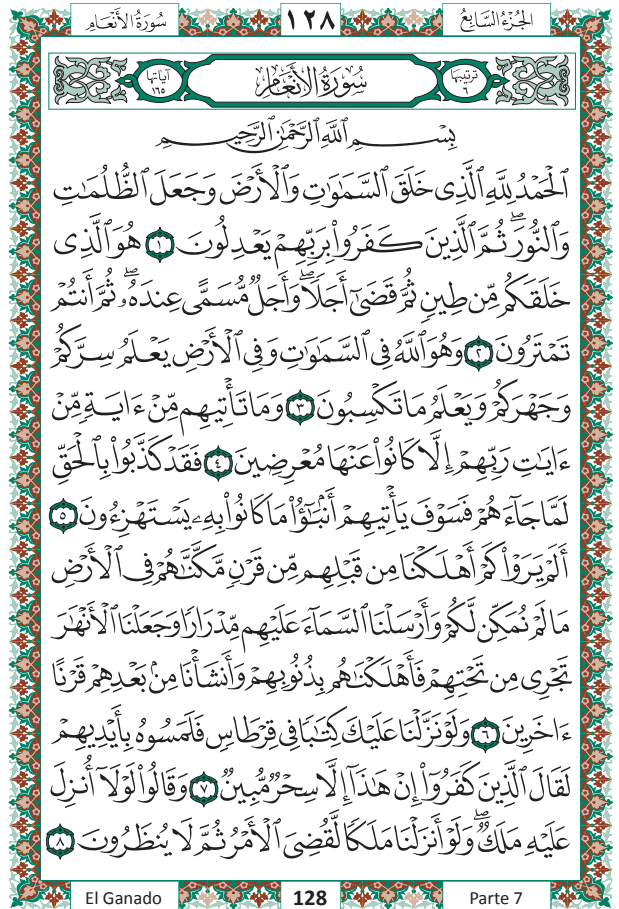 سُورَةُ الأَنْعَامِ ١٢٨ الجُزْءُ السَّابِعُ
آيَاتُهَا ١٦٥ سُورَةُ الأَنْعَامِ تَرْتِيبُهَا ٦
بِسْمِ ٱللَّهِ ٱلرَّحْمَٰنِ ٱلرَّحِيمِ
ٱلْحَمْدُ لِلَّهِ ٱلَّذِى خَلَقَ ٱلسَّمَٰوَٰتِ وَٱلْأَرْضَ وَجَعَلَ ٱلظُّلُمَٰتِ
وَٱلنُّورَ ۖ ثُمَّ ٱلَّذِينَ كَفَرُوا۟ بِرَبِّهِمْ يَعْدِلُونَ ١ هُوَ ٱلَّذِى
خَلَقَكُم مِّن طِينٍ ثُمَّ قَضَىٰٓ أَجَلًا ۖ وَأَجَلٌ مُّسَمًّى عِندَهُۥ ۖ ثُمَّ أَنتُمْ
تَمْتَرُونَ ٢ وَهُوَ ٱللَّهُ فِى ٱلسَّمَٰوَٰتِ وَفِى ٱلْأَرْضِ يَعْلَمُ سِرَّكُمْ
وَجَهْرَكُمْ وَيَعْلَمُ مَا تَكْسِبُونَ ٣ وَمَا تَأْتِيهِم مِّنْ ءَايَةٍ مِّنْ
ءَايَٰتِ رَبِّهِمْ إِلَّا كَانُوا۟ عَنْهَا مُعْرِضِينَ ٤ فَقَدْ كَذَّبُوا۟ بِٱلْحَقِّ
لَمَّا جَآءَهُمْ فَسَوْفَ يَأْتِيهِمْ أَنۢبَٰٓؤُا۟ مَا كَانُوا۟ بِهِۦ يَسْتَهْزِءُونَ ٥
أَلَمْ يَرَوْا۟ كَمْ أَهْلَكْنَا مِن قَبْلِهِم مِّن قَرْنٍ مَّكَّنَّٰهُمْ فِى ٱلْأَرْضِ
مَا لَمْ نُمَكِّن لَّكُمْ وَأَرْسَلْنَا ٱلسَّمَآءَ عَلَيْهِم مِّدْرَارًا وَجَعَلْنَا ٱلْأَنْهَٰرَ
تَجْرِى مِن تَحْتِهِمْ فَأَهْلَكْنَٰهُم بِذُنُوبِهِمْ وَأَنشَأْنَا مِنۢ بَعْدِهِمْ قَرْنًا
ءَاخَرِينَ ٦ وَلَوْ نَزَّلْنَا عَلَيْكَ كِتَٰبًا فِى قِرْطَاسٍ فَلَمَسُوهُ بِأَيْدِيهِمْ
لَقَالَ ٱلَّذِينَ كَفَرُوٓا۟ إِنْ هَٰذَآ إِلَّا سِحْرٌ مُّبِينٌ ٧ وَقَالُوا۟ لَوْلَآ أُنزِلَ
عَلَيْهِ مَلَكٌ ۖ وَلَوْ أَنزَلْنَا مَلَكًا لَّقُضِىَ ٱلْأَمْرُ ثُمَّ لَا يُنظَرُونَ ٨
El Ganado 128 Parte 7